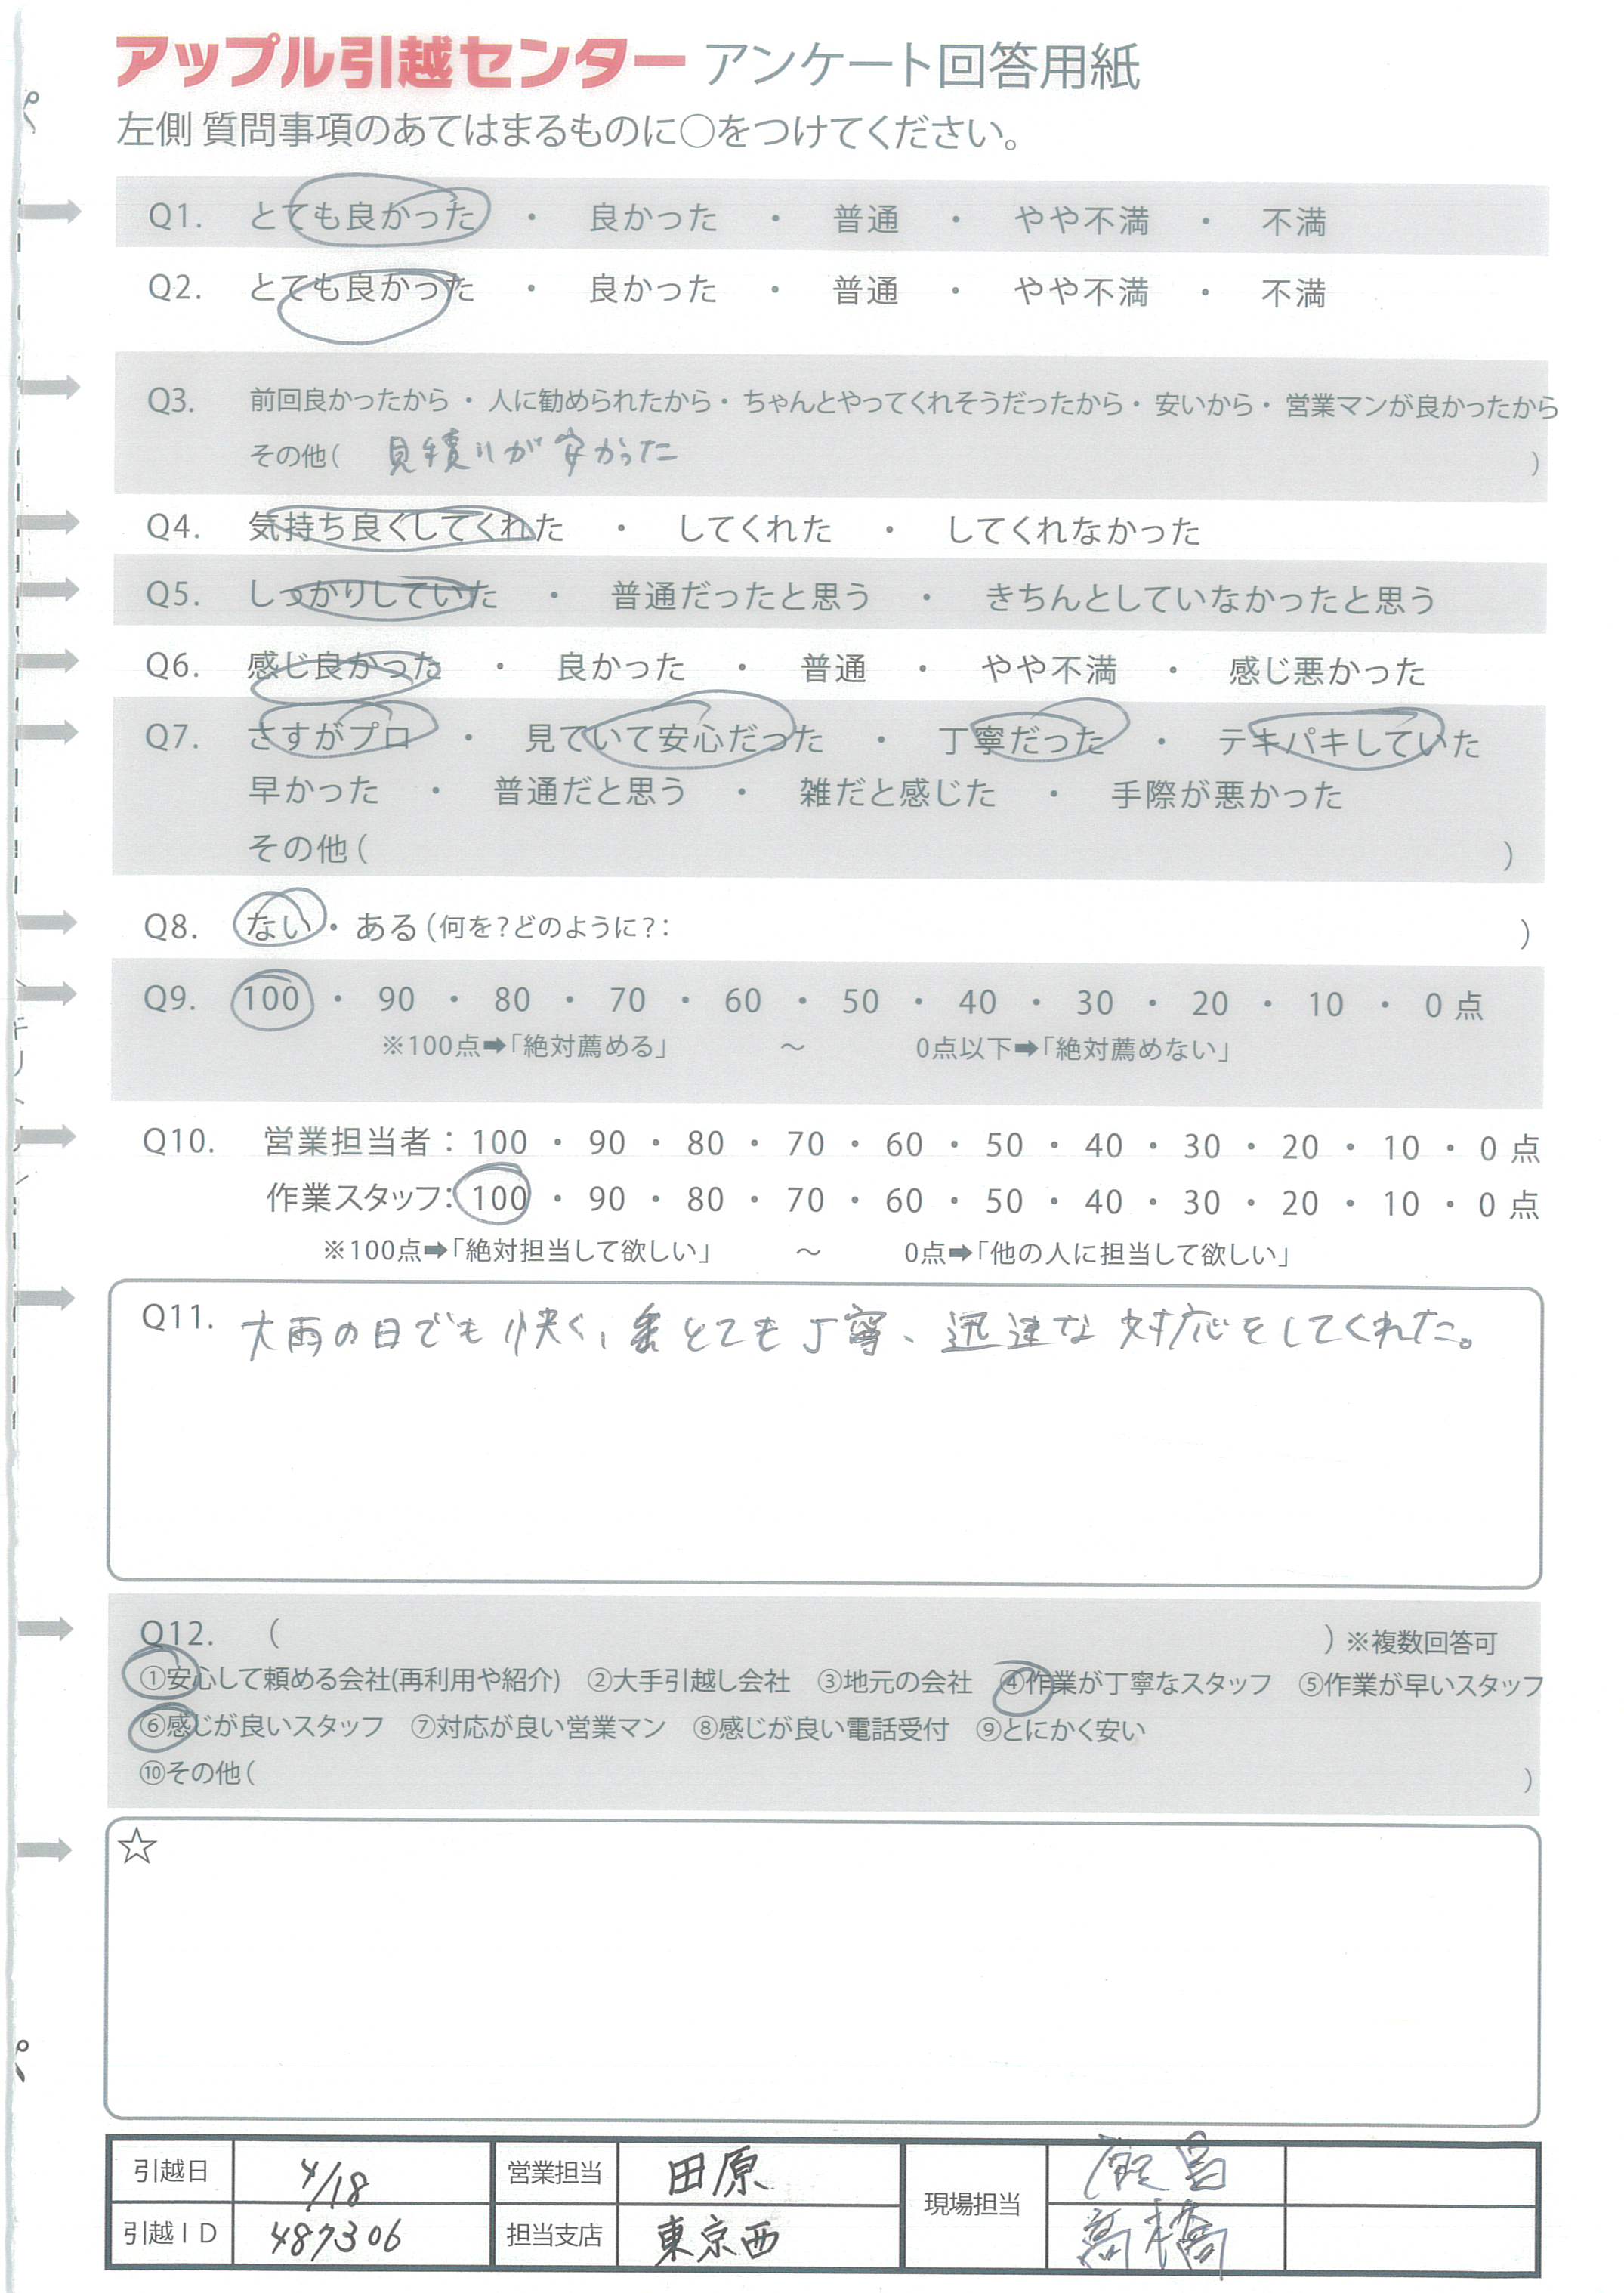 アップル引越センター アンケート回答用紙
左側 質問事項のあてはまるものに○をつけてください。
Q1. とても良かった ・ 良かった ・ 普通 ・ やや不満 ・ 不満
Q2. とても良かった ・ 良かった ・ 普通 ・ やや不満 ・ 不満
Q3. 前回良かったから ・ 人に勧められたから ・ ちゃんとやってくれそうだったから ・ 安いから ・ 営業マンが良かったから
その他( 見積りが安かった )
Q4. 気持ち良くしてくれた ・ してくれた ・ してくれなかった
Q5. しっかりしていた ・ 普通だったと思う ・ きちんとしていなかったと思う
Q6. 感じ良かった ・ 良かった ・ 普通 ・ やや不満 ・ 感じ悪かった
Q7. さすがプロ ・ 見ていて安心だった ・ 丁寧だった ・ テキパキしていた
早かった ・ 普通だと思う ・ 雑だと感じた ・ 手際が悪かった
その他( )
Q8. ない ・ ある (何を?どのように?: )
Q9. 100 ・ 90 ・ 80 ・ 70 ・ 60 ・ 50 ・ 40 ・ 30 ・ 20 ・ 10 ・ 0 点
※100点➡「絶対薦める」 ～ 0点以下➡「絶対薦めない」
Q10. 営業担当者 : 100 ・ 90 ・ 80 ・ 70 ・ 60 ・ 50 ・ 40 ・ 30 ・ 20 ・ 10 ・ 0 点
作業スタッフ: 100 ・ 90 ・ 80 ・ 70 ・ 60 ・ 50 ・ 40 ・ 30 ・ 20 ・ 10 ・ 0 点
※100点➡「絶対担当して欲しい」 ～ 0点➡「他の人に担当して欲しい」
Q11. 大雨の日でも快く、とても丁寧、迅速な対応をしてくれた。
Q12. ( ) ※複数回答可
①安心して頼める会社(再利用や紹介) ②大手引越し会社 ③地元の会社 ④作業が丁寧なスタッフ ⑤作業が早いスタッフ
⑥感じが良いスタッフ ⑦対応が良い営業マン ⑧感じが良い電話受付 ⑨とにかく安い
⑩その他( )
☆
引越日 4/18 営業担当 田原 現場担当
引越ID 487306 担当支店 東京西 高橋